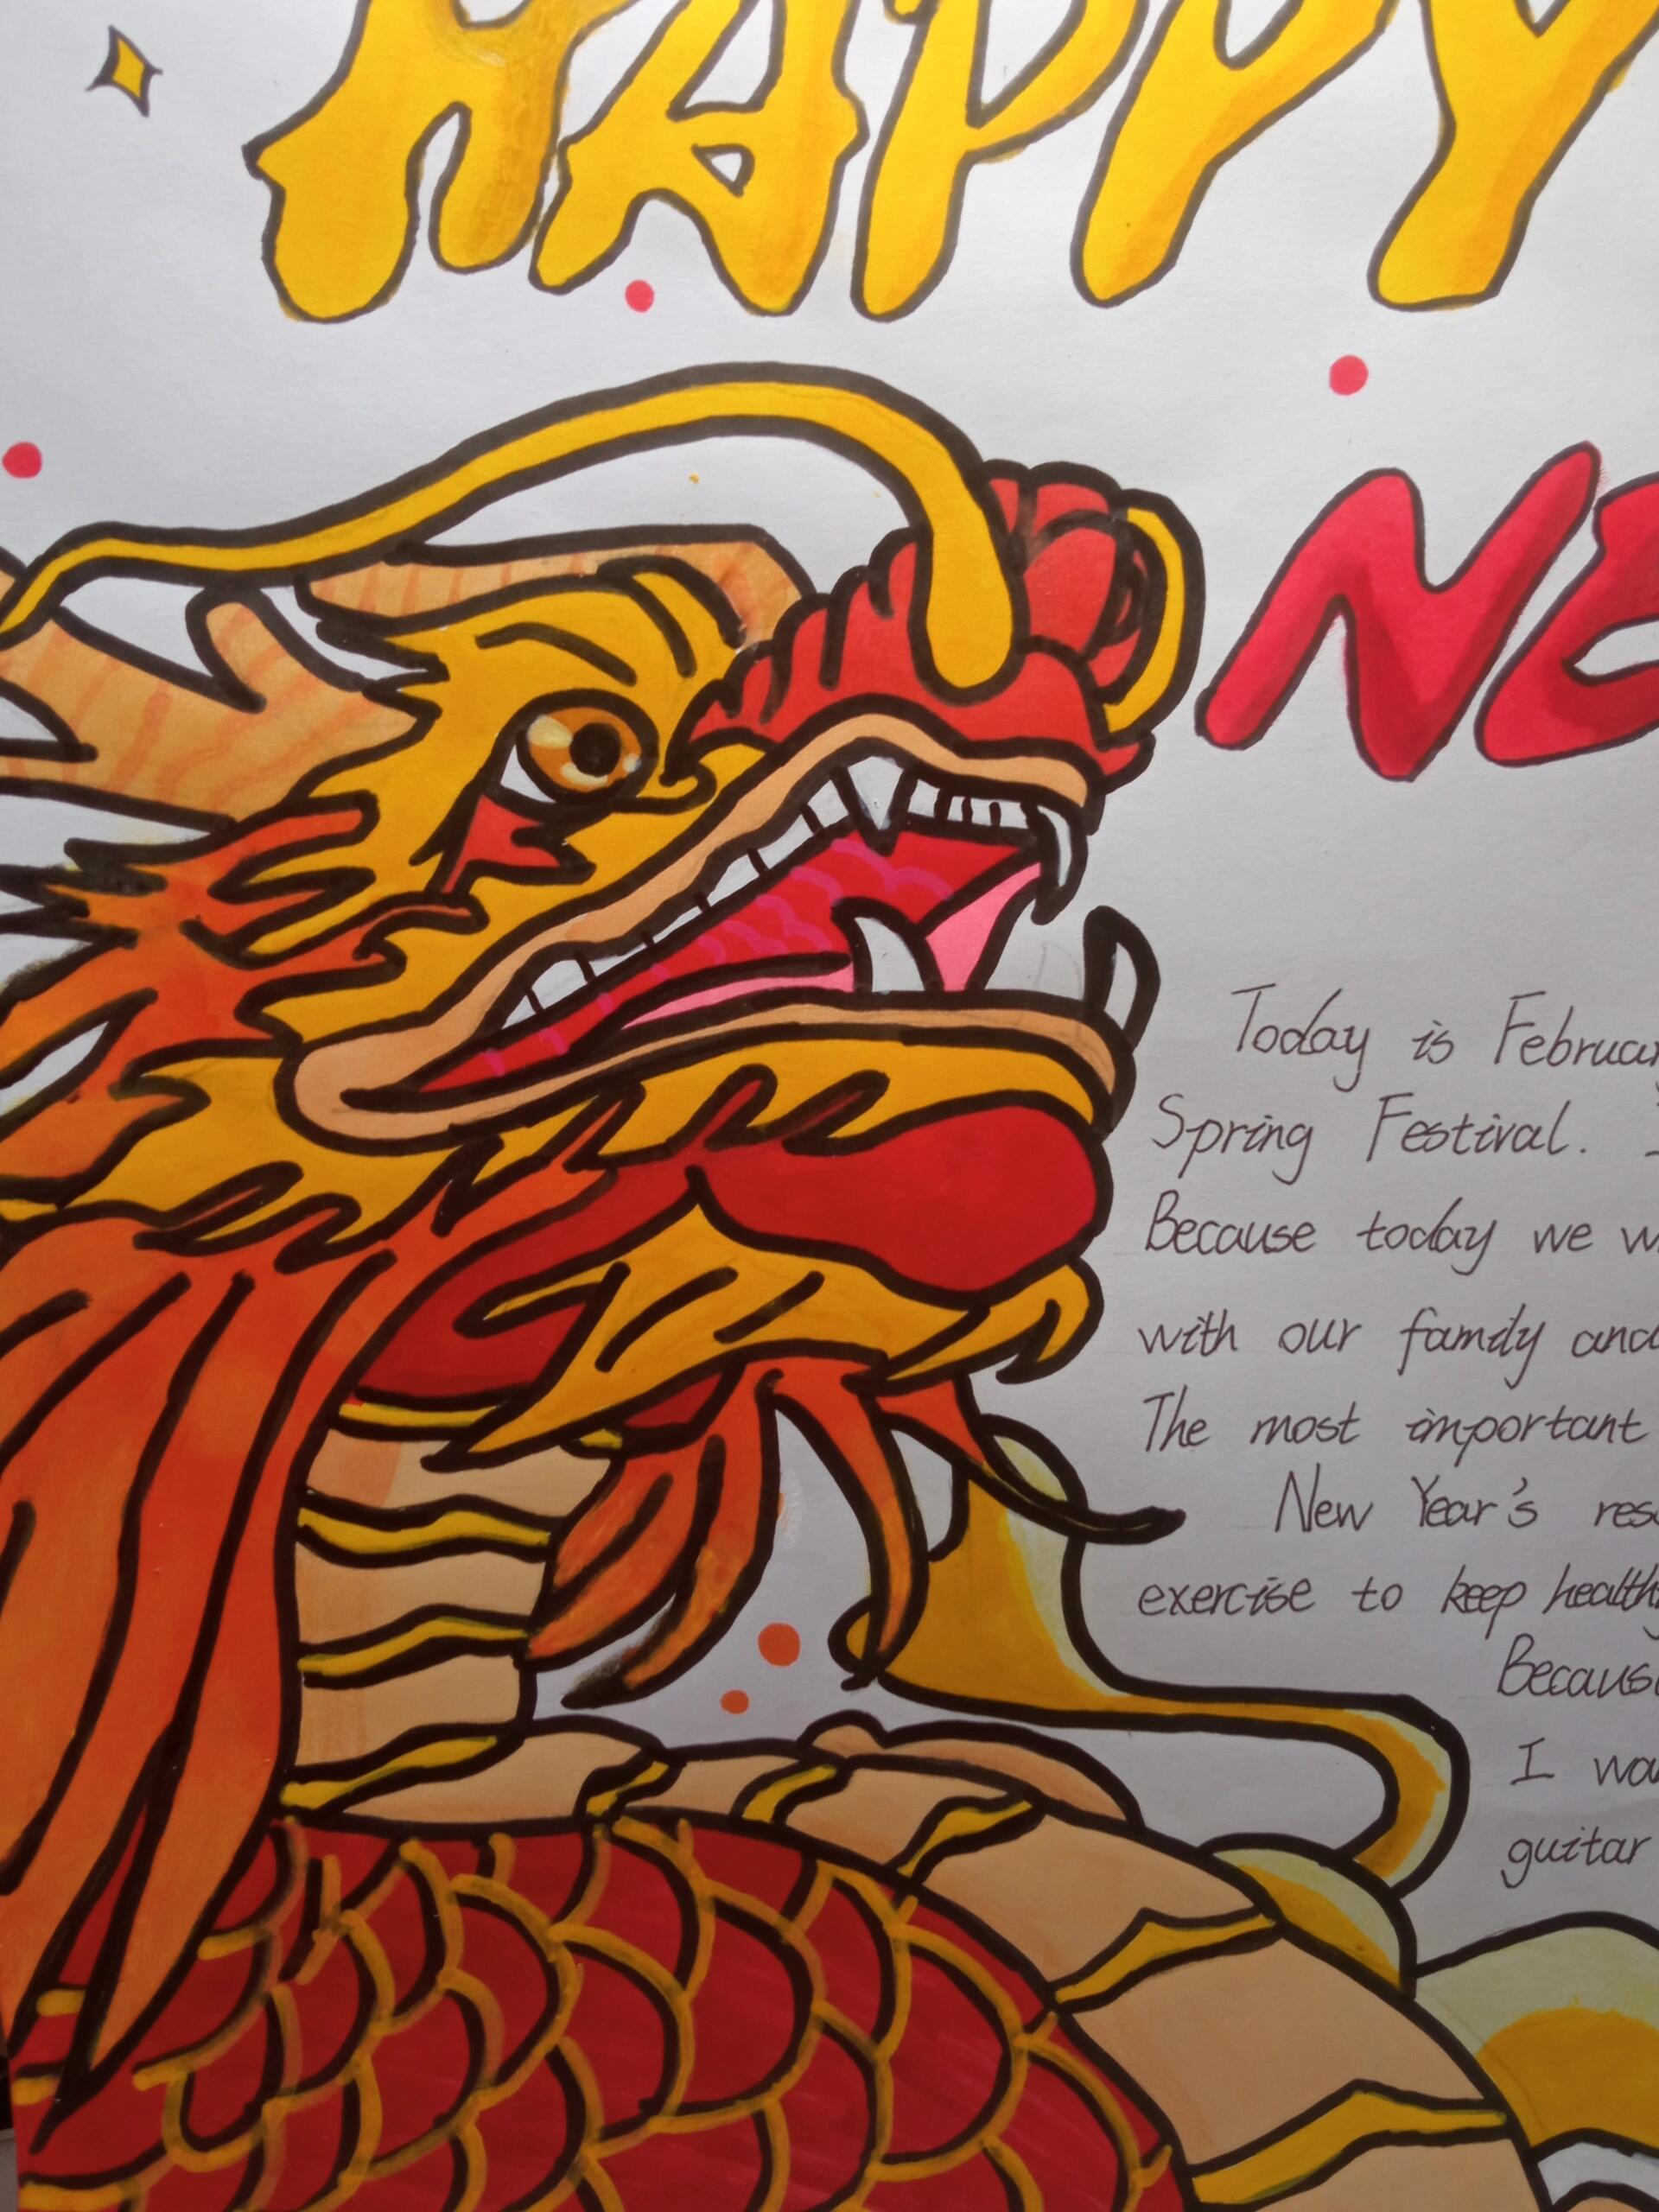 HAPPY
NE
Today is Februar
Spring Festival.
Because today we w
with our family and
The most important
New Year's res
exercise to keep healthy
Because
I wa
guitar